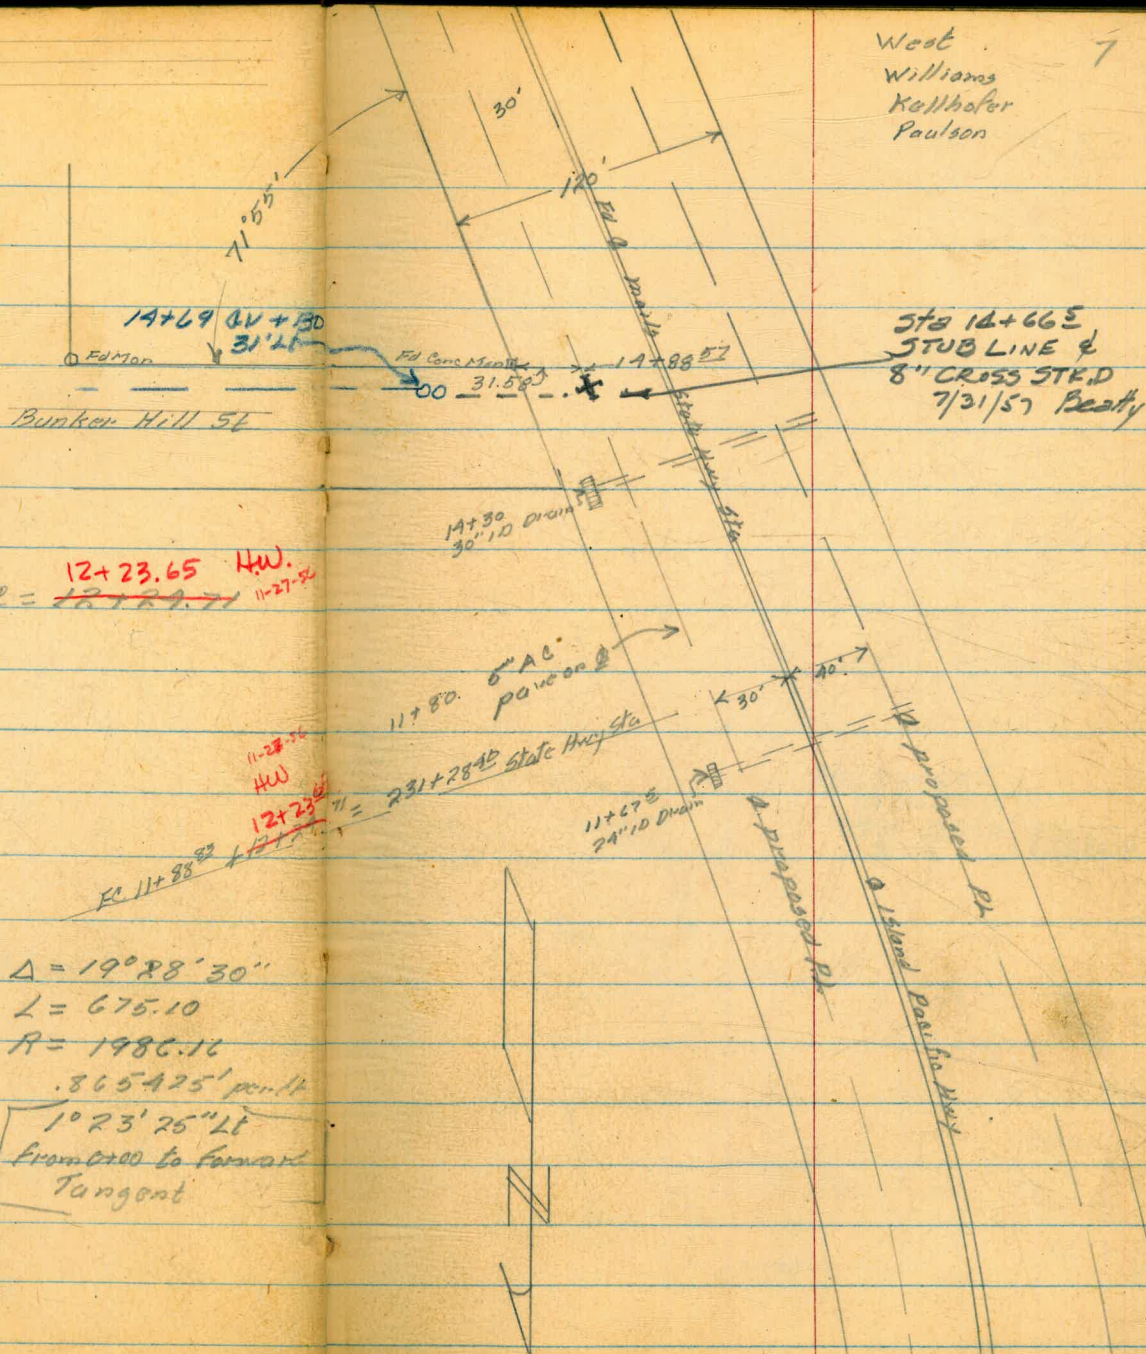 West
Williams
Kallhofer
Paulson
7
30'
120'
71°55'
14+69 GV + BO
31' Lt
Fd Mon
Fd Conc Mon
31.58
14+88 57
Sta 14+66 5
STUB LINE &
8" CROSS STK.D
7/31/57 Beatty
Bunker Hill St
Fd ℄ marks State Hwy Sta
14+30
30" ID Drain
12+23.65 H.W.
= 12+24.71 11-27-56
5" AC
pave on ℄
11+80
30'
40'
11-27-56
HW
12+23 65
EC 11+88 83 71 = 231+28 40 State Hwy Sta
11+67 5
24" ID Drain
℄ proposed Pl
℄ proposed Pl
℄ Island Pacific Hwy
Δ = 19°28'30"
L = 675.10
R = 1986.16
.865425' per ft
1°23'25" Lt
From 0+00 to Forward
Tangent
N